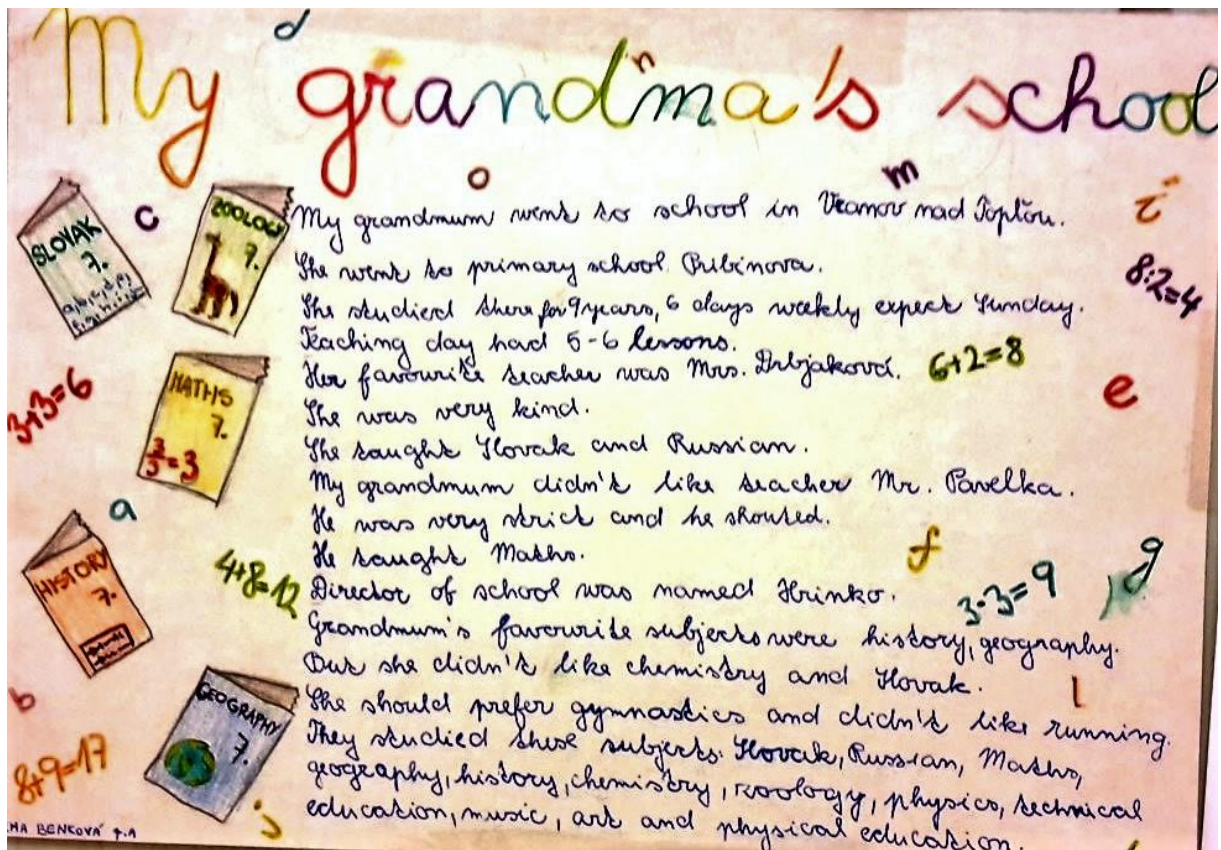 My grandma's school
d
n
o
m
i
c
SLOVAK
7.
a, b, c, d, e,
f, g, h, i, j
ZOOLOGY
7.
My grandmum went to school in Vranov nad Topľou.
She went to primary school Pribinova.
8:2=4
She studied there for 9 years, 6 days weekly expect Sunday.
Teaching day had 5-6 lessons.
Her favourite teacher was Mrs. Drbjaková.
6+2=8
e
3+3=6
MATHS
7.
=3
She was very kind.
She taught Slovak and Russian.
My grandmum didn't like teacher Mr. Pavelka.
a
He was very strict and he shouted.
f
g
HISTORY
7.
He taught Maths.
4+8=12
Director of school was named Hrinko.
3·3=9
Grandmum's favourite subjects were history, geography.
But she didn't like chemistry and Slovak.
l
b
GEOGRAPHY
7.
She should prefer gymnastics and didn't like running.
They studied these subjects: Slovak, Russian, Maths,
8+9=17
geography, history, chemistry, zoology, physics, technical
education, music, art and physical education.
j
BENKOVÁ